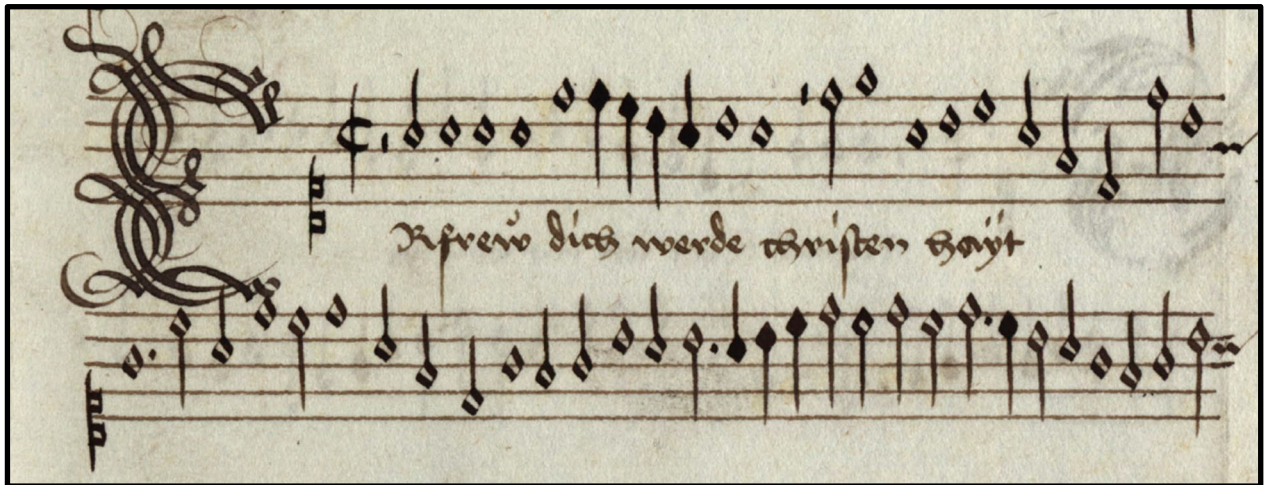 Erfrew dich werde christen hayt